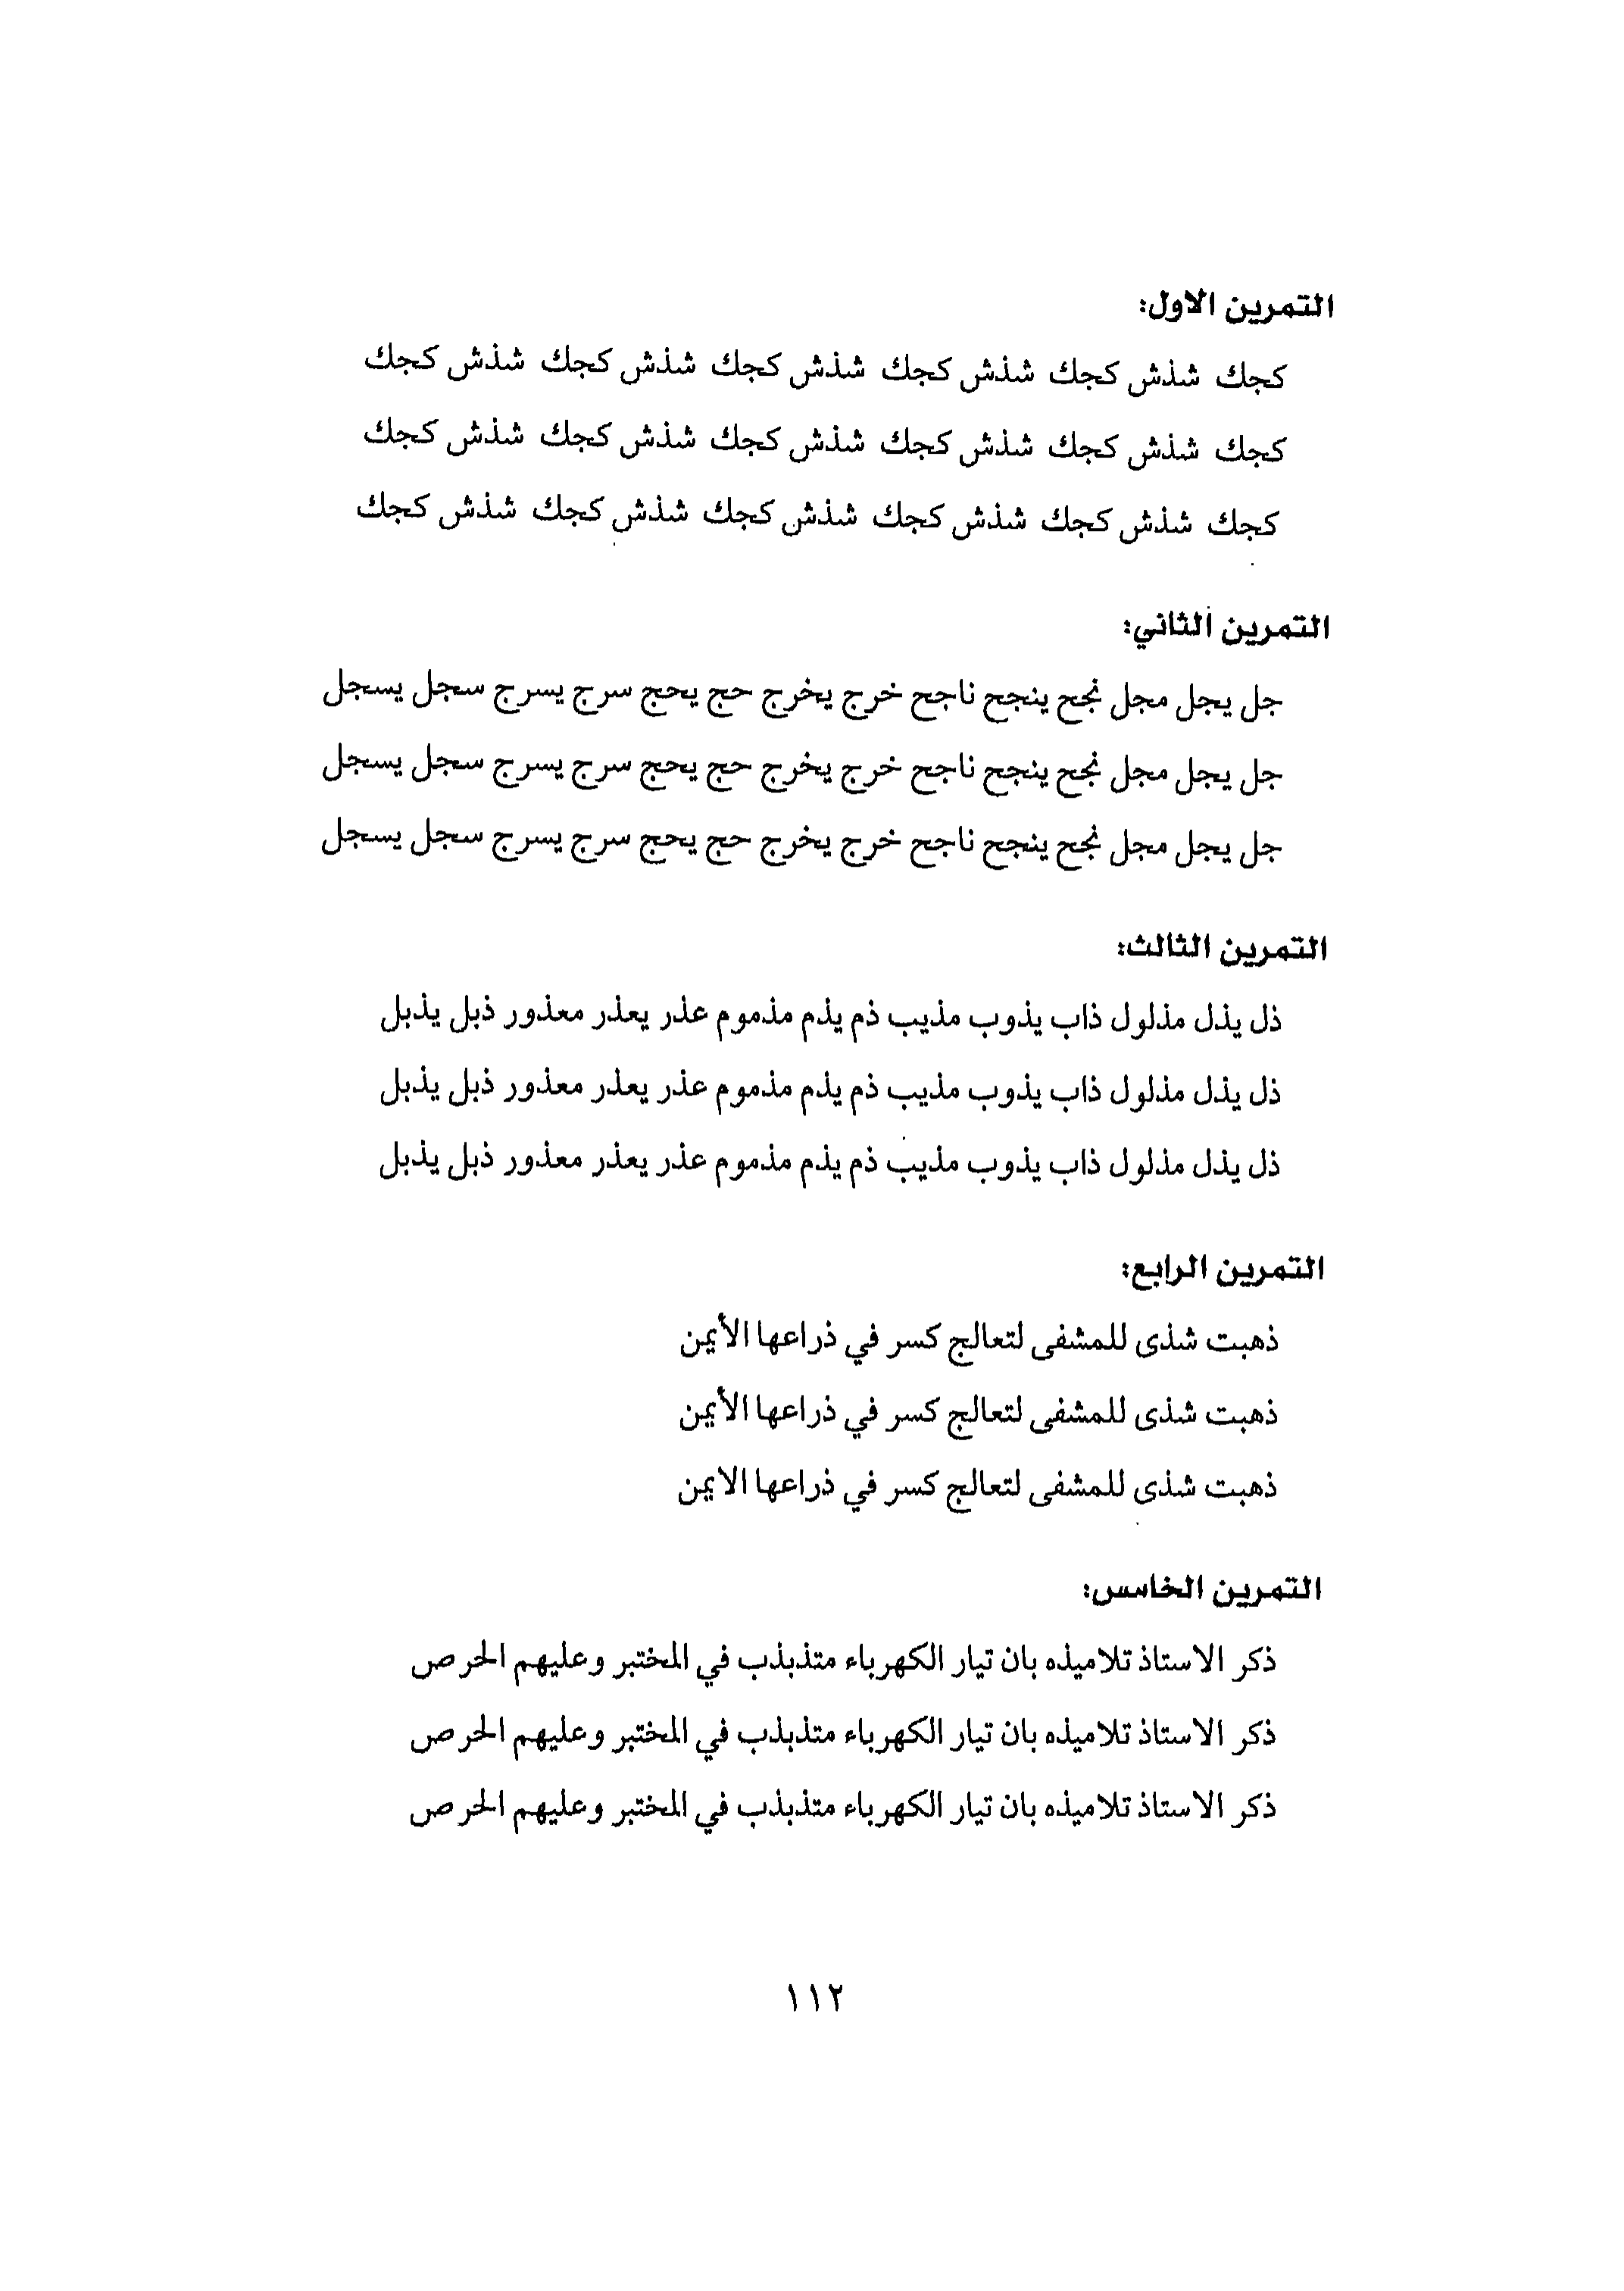 التمرين الاول:
كجك شذش كجك شذش كجك شذش كجك شذش كجك شذش كجك
كجك شذش كجك شذش كجك شذش كجك شذش كجك شذش كجك
كجك شذش كجك شذش كجك شذش كجك شذش كجك شذش كجك
التمرين الثاني:
جل يجل مجل نجح ينجح ناجح خرج يخرج حج يحج سرج يسرج سجل يسجل
جل يجل مجل نجح ينجح ناجح خرج يخرج حج يحج سرج يسرج سجل يسجل
جل يجل مجل نجح ينجح ناجح خرج يخرج حج يحج سرج يسرج سجل يسجل
التمرين الثالث:
ذل يذل مذلول ذاب يذوب مذيب ذم يذم مذموم عذر يعذر معذور ذبل يذبل
ذل يذل مذلول ذاب يذوب مذيب ذم يذم مذموم عذر يعذر معذور ذبل يذبل
ذل يذل مذلول ذاب يذوب مذيب ذم يذم مذموم عذر يعذر معذور ذبل يذبل
التمرين الرابع:
ذهبت شذى للمشفى لتعالج كسر في ذراعها الأيمن
ذهبت شذى للمشفى لتعالج كسر في ذراعها الأيمن
ذهبت شذى للمشفى لتعالج كسر في ذراعها الايمن
التمرين الخامس:
ذكر الاستاذ تلاميذه بان تيار الكهرباء متذبذب في المختبر وعليهم الحرص
ذكر الاستاذ تلاميذه بان تيار الكهرباء متذبذب في المختبر وعليهم الحرص
ذكر الاستاذ تلاميذه بان تيار الكهرباء متذبذب في المختبر وعليهم الحرص
١١٢